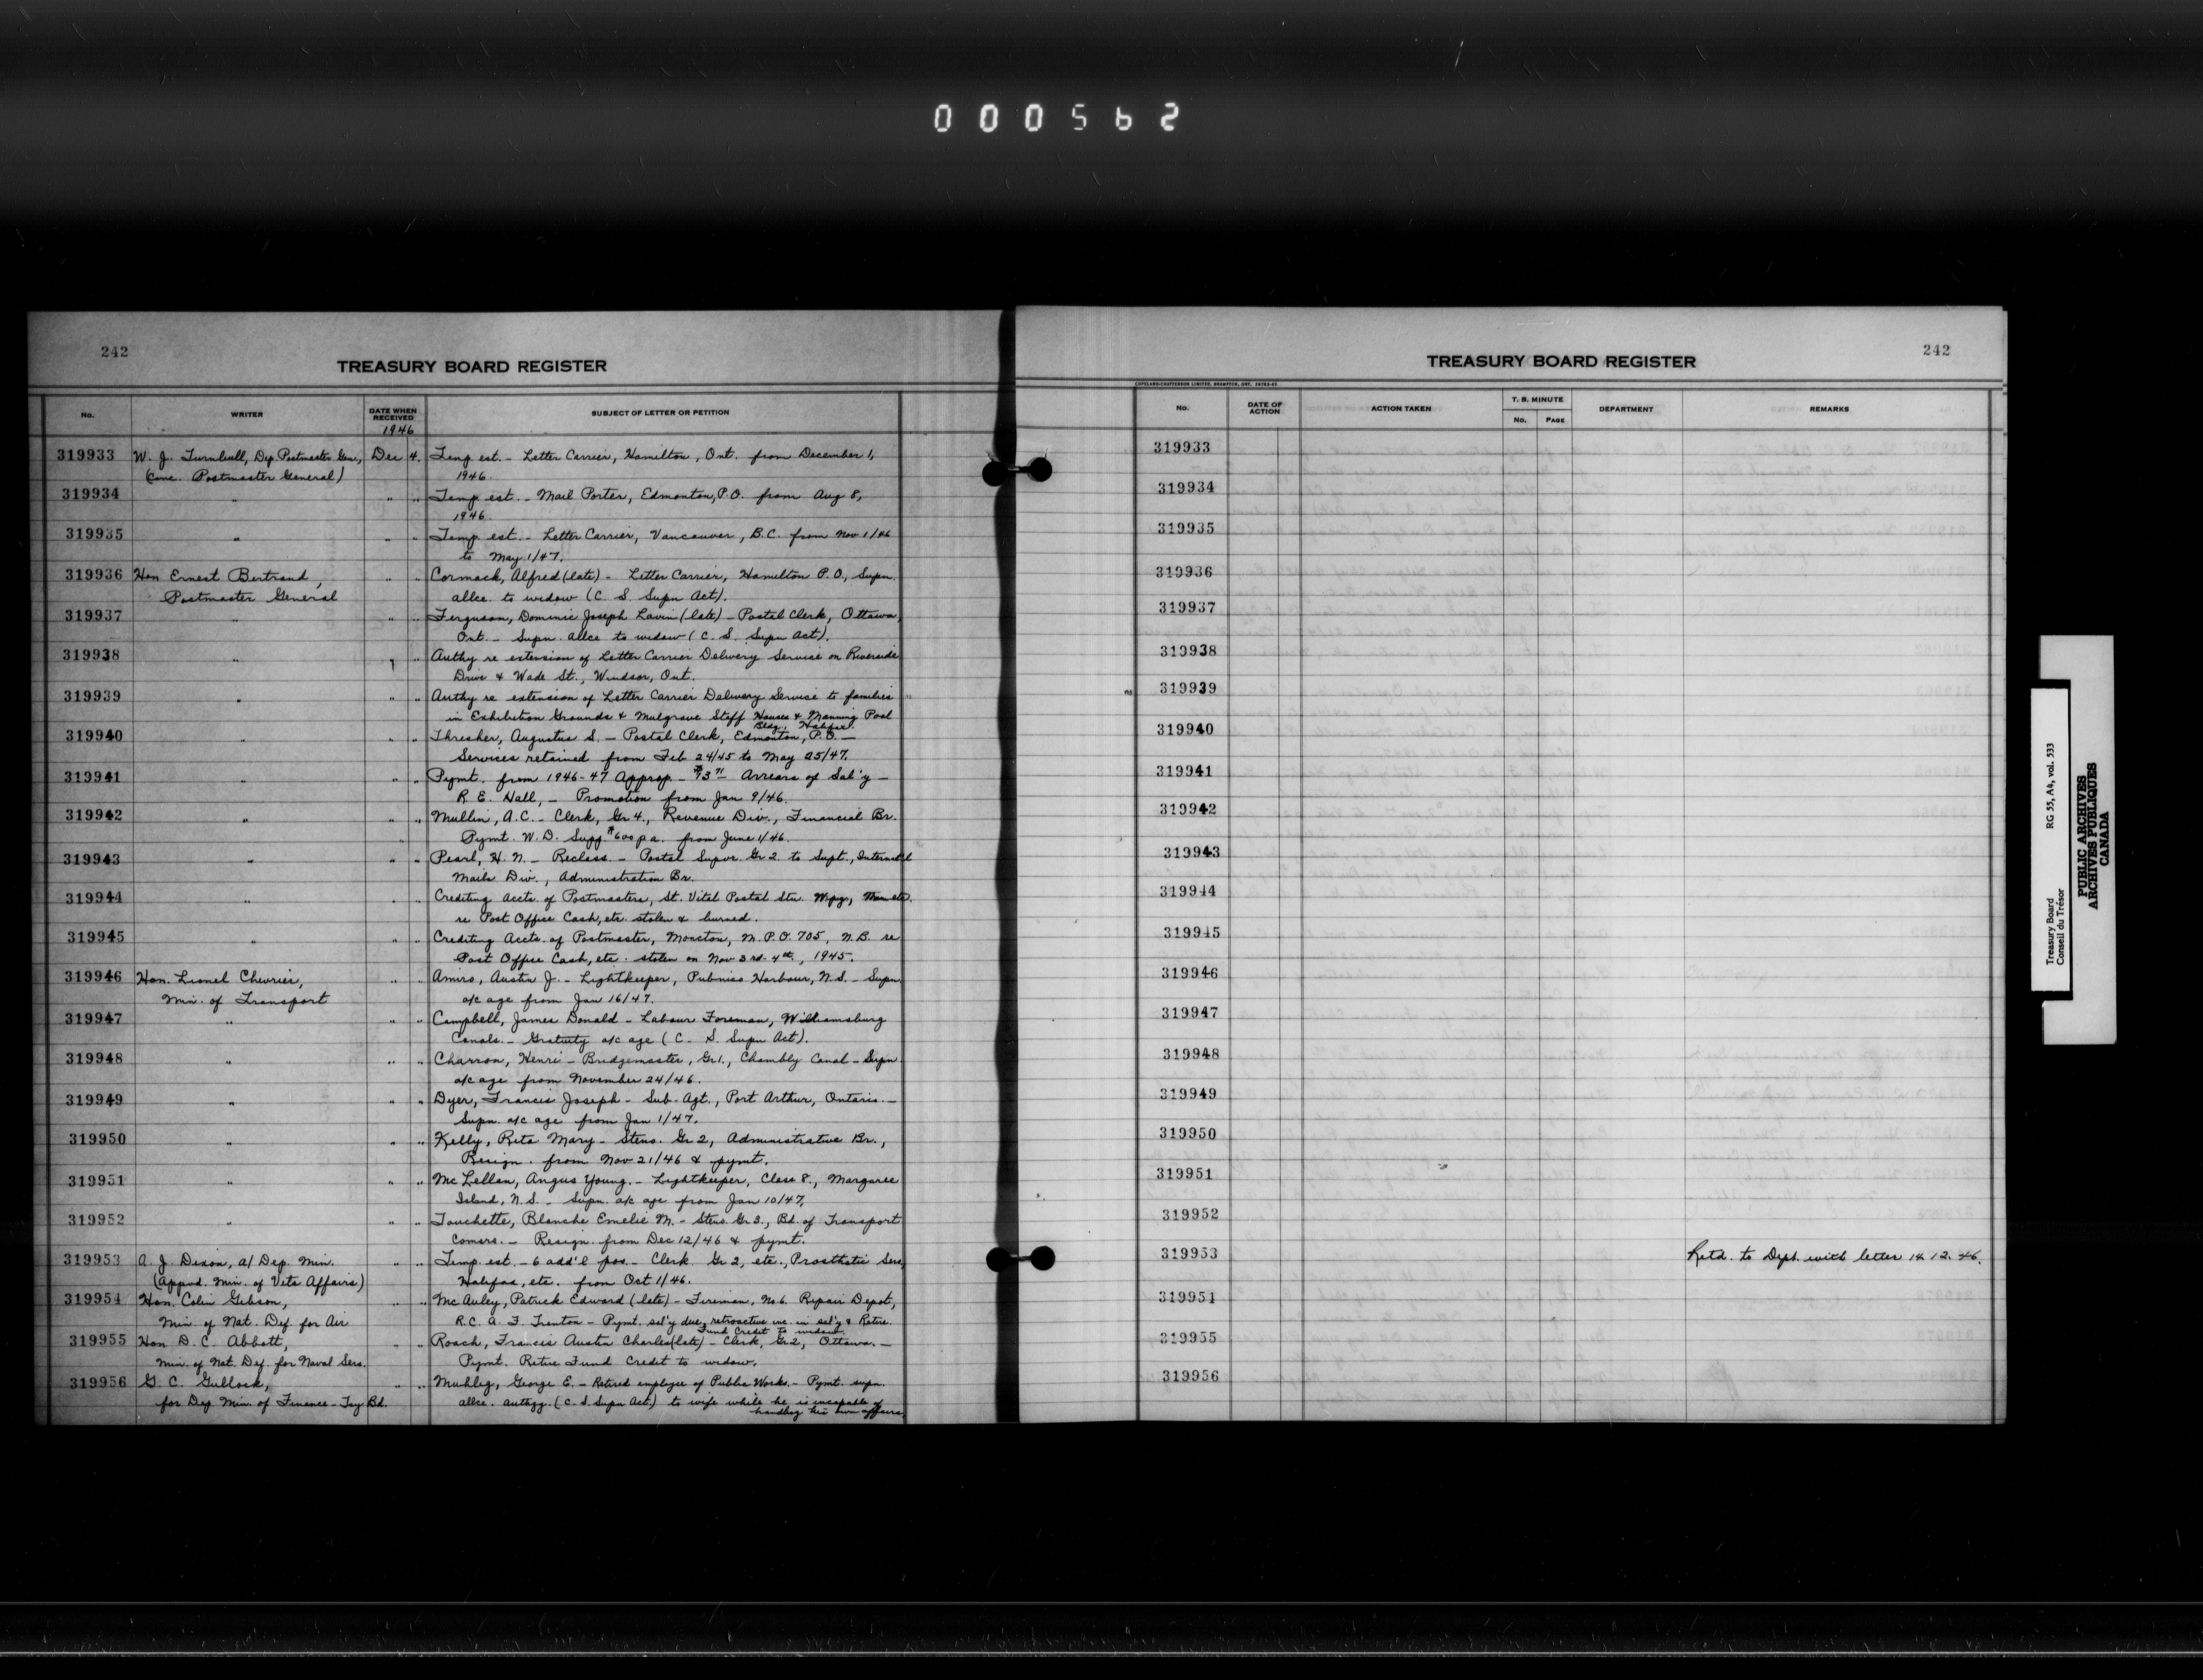 000562
242
TREASURY BOARD REGISTER
No. WRITER DATE WHEN RECEIVED SUBJECT OF LETTER OR PETITION
1946
319933 W. J. Turnbull, Dep. Postmaster Genr, Dec 4. Temp est. - Letter Carrier, Hamilton, Ont. from December 1,
(conc. Postmaster General) 1946.
319934 " " " Temp est. - Mail Porter, Edmonton, P.O. from Aug 8,
1946.
319935 " " " Temp est. - Letter Carrier, Vancouver, B.C. from Nov 1/46
to May 1/47.
319936 Hon Ernest Bertrand, " " Cormack, Alfred (late) - Letter Carrier, Hamilton P.O., Supn.
Postmaster General allce. to widow (C. S. Supn Act).
319937 " " " Ferguson, Dominic Joseph Lavin (late) - Postal Clerk, Ottawa,
Ont. - Supn. allce to widow (C. S. Supn Act).
319938 " " " Authy re extension of Letter Carrier Delivery Service on Riverside
Drive & Wade St., Windsor, Ont.
319939 " " " Authy re extension of Letter Carrier Delivery Service to families
in Exhibition Grounds & Mulgrave Staff Houses & Manning Pool
Bldg. Halifax.
319940 " " " Thresher, Augustus S. - Postal Clerk, Edmonton, P.O. -
Services retained from Feb 24/45 to May 25/47.
319941 " " " Pymt. from 1946-47 Approp. - $73 71 Arrears of Sal'y -
R. E. Hall, - Promotion from Jan 9/46.
319942 " " " Mullin, A.C. - Clerk, Gr 4., Revenue Div., Financial Br.
Pymt. W. D. Supp. $600 p a. from June 1/46.
319943 " " " Pearl, H. N. - Reclass. - Postal Supvr. Gr 2 to Supt.,
Mails Div., Administration Br.
319944 " " " Crediting Accts. of Postmasters, St. Vital Postal Stn. Wpg,
re Post Office Cash, etc. stolen & burned.
319945 " " " Crediting Accts. of Postmaster, Moncton, M.P.O. 705, N.B. re
Post Office Cash, etc. stolen on Nov 3rd-4th, 1945.
319946 Hon. Lionel Chevrier, " " Amiro, Austin J. - Lightkeeper, Pubnico Harbour, N.S. - Supn
Min. of Transport a/c age from Jan 16/47.
319947 " " " Campbell, James Donald - Labour Foreman, Williamsburg
Canals. - Gratuity a/c age (C. S. Supn Act).
319948 " " " Charron, Henri - Bridgemaster, Gr 1., Chambly Canal - Supn
a/c age from November 24/46.
319949 " " " Dyer, Francis Joseph - Sub-Agt., Port Arthur, Ontario. -
Supn. a/c age from Jan 1/47.
319950 " " " Kelly, Rita Mary - Steno. Gr 2, Administrative Br.,
Resign. from Nov 21/46 & pymt.
319951 " " " McLellan, Angus Young. - Lightkeeper, Class 8., Margaree
Island, N.S. - Supn. a/c age from Jan 10/47.
319952 " " " Touchette, Blanche Emelie M. - Steno. Gr 3., Bd. of Transport
Comsrs. - Resign. from Dec 12/46 & pymt.
319953 A. J. Dixon, a/ Dep. Min. " " Temp est. - 6 add'l pos. - Clerk Gr 2, etc., Prosthetic Serv,
(Appvd. Min. of Vets Affairs) Halifax, etc. from Oct 1/46.
319954 Hon. Colin Gibson, " " McAuley, Patrick Edward (late) - Fireman, No 6 Repair Depot,
Min. of Nat. Def. for Air R.C.A.F. Trenton - Pymt. sal'y due, retroactive inc. in sal'y & Retire.
Fund Credit to widow.
319955 Hon D. C. Abbott, " " Roach, Francis Austin Charles (late) - Clerk, Gr 2, Ottawa. -
Min. of Nat. Def. for Naval Serv. Pymt. Retire Fund Credit to widow.
319956 G. C. Gullock, " " Muhlig, George E. - Retired employee of Public Works. - Pymt. supn.
for Dep Min. of Finance - Tsy Bd. allce. authzg. (C. S. Supn Act) to wife while he is incapable of
handling his own affairs.
242
TREASURY BOARD REGISTER
COPELAND-CHATTERSON LIMITED, BRAMPTON, ONT.
No. DATE OF ACTION ACTION TAKEN T. B. MINUTE DEPARTMENT REMARKS
No. PAGE
319933
319934
319935
319936
319937
319938
319939
319940
319941
319942
319943
319944
319945
319946
319947
319948
319949
319950
319951
319952
319953 Retd. to Dept. with letter 14.12.46.
319954
319955
319956
Treasury Board RG 55, A4, vol. 533
Conseil du Trésor
PUBLIC ARCHIVES
ARCHIVES PUBLIQUES
CANADA